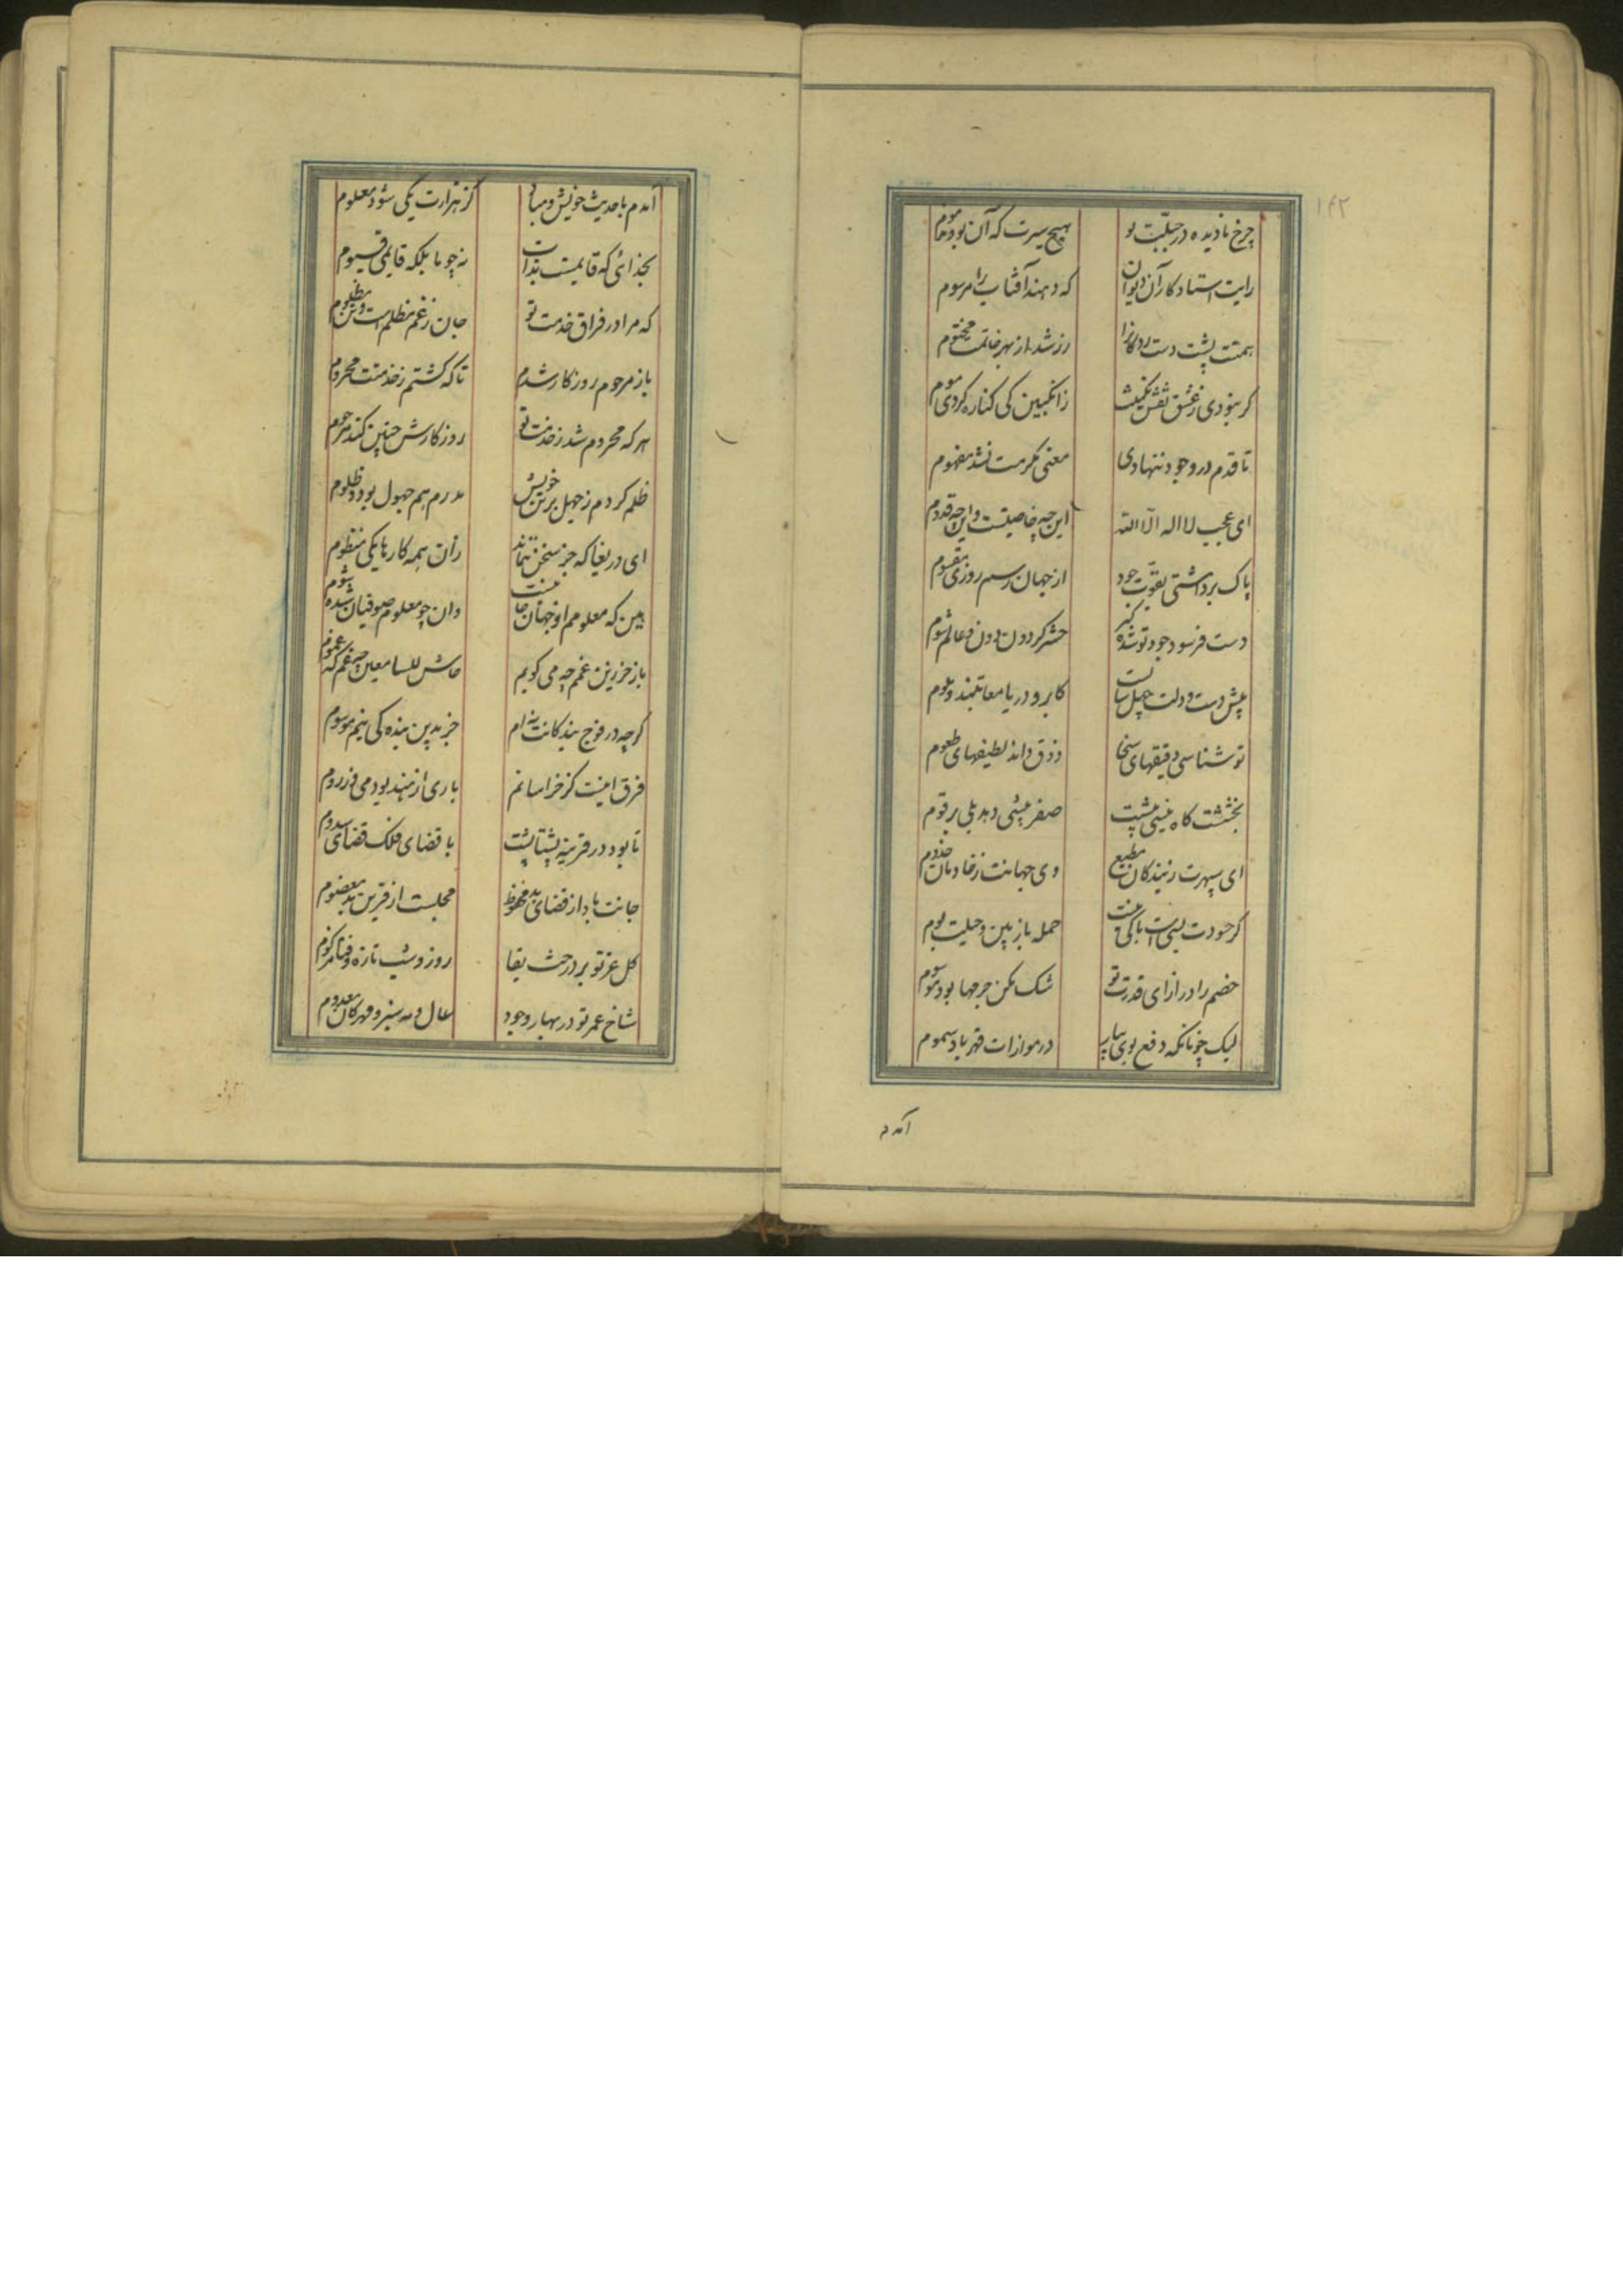 ۱۴۲
چرخ نادیده در جبلّت تو
هیچ سیرت که آن بود مذموم
رایت استاد کار آن دیوان
که دهند آفتاب را مرسوم
همتت پشت دست زد کانرا
رز شد از مهر خاتمت مختوم
گر نبودی ز عشق نقش نگینت
ز انگبین کی کناره کردی موم
تا قدم در وجود ننهادی
معنی مکرمت نشد مفهوم
ای عجب لا اله الّا الله
این چه خاصیتست و این چه قدوم
پاک برداشتی بقوّت جود
از جهان رسم روزی مقسوم
دست فرسود جود تو شده گیر
حشر گردون دون و عالم شوم
پیش دست و دلت چهل سالست
کابر و دریا معاتبند و ملوم
تو شناسی دقیقهای سخا
ذوق داند لطیفهای طعوم
بخششت گاه نیستی پیشت
صفر بیشی دهد بلی برقوم
ای سپهرت ز بندگان مطیع
وی جهانت ز خادمان خدوم
گر حسودت بسی است باکی نیست
حمله باز بین و حیلت بوم
خصم را در ازای قدرت تو
شک مکن جرمها بود مرسوم
لیک چونانکه دفع بوی پیاز
در موازات قهر باد سموم
آمدم
آمدم با حدیث خویش و مباد
کز هزارت یکی شود معلوم
بخدائی که قایمست بذات
نه چو ما بلکه قایمی قیوم
که مرا در فراق خدمت تو
جان ز غم مظلم است و تن مظلوم
باز مرحوم روزگار شدم
تا که گشتم ز خدمتت محروم
هر که محروم شد ز خدمت تو
روزگارش چنین کند مرحوم
ظلم کردم ز جهل بر تن خویش
پدرم هم جهول بود و ظلوم
ای دریغا که جز سخن بنماند
زان همه کارها یکی منظوم
بین که معلومم از جهان جانیست
وان چو معلوم صوفیان شده شوم
باز خر زین غمم چه می گویم
حاش للسامعین چه غم که غموم
گرچه در فوج بندگانت نه ام
جز بدین بنده کی نیم موسوم
فرق اینست کز خراسانم
باری از هند بودمی وز روم
تا بود در قرینه پشتا پشت
با قضای فلک قضای سدوم
جانت باد از قضای بد محفوظ
مجلست از قرین بد معصوم
گل عز تو بر درخت بقا
روز و شب تازه و فنا مزکوم
شاخ عمر تو در بهار وجود
سال و مه سبز و مهرگان معدوم